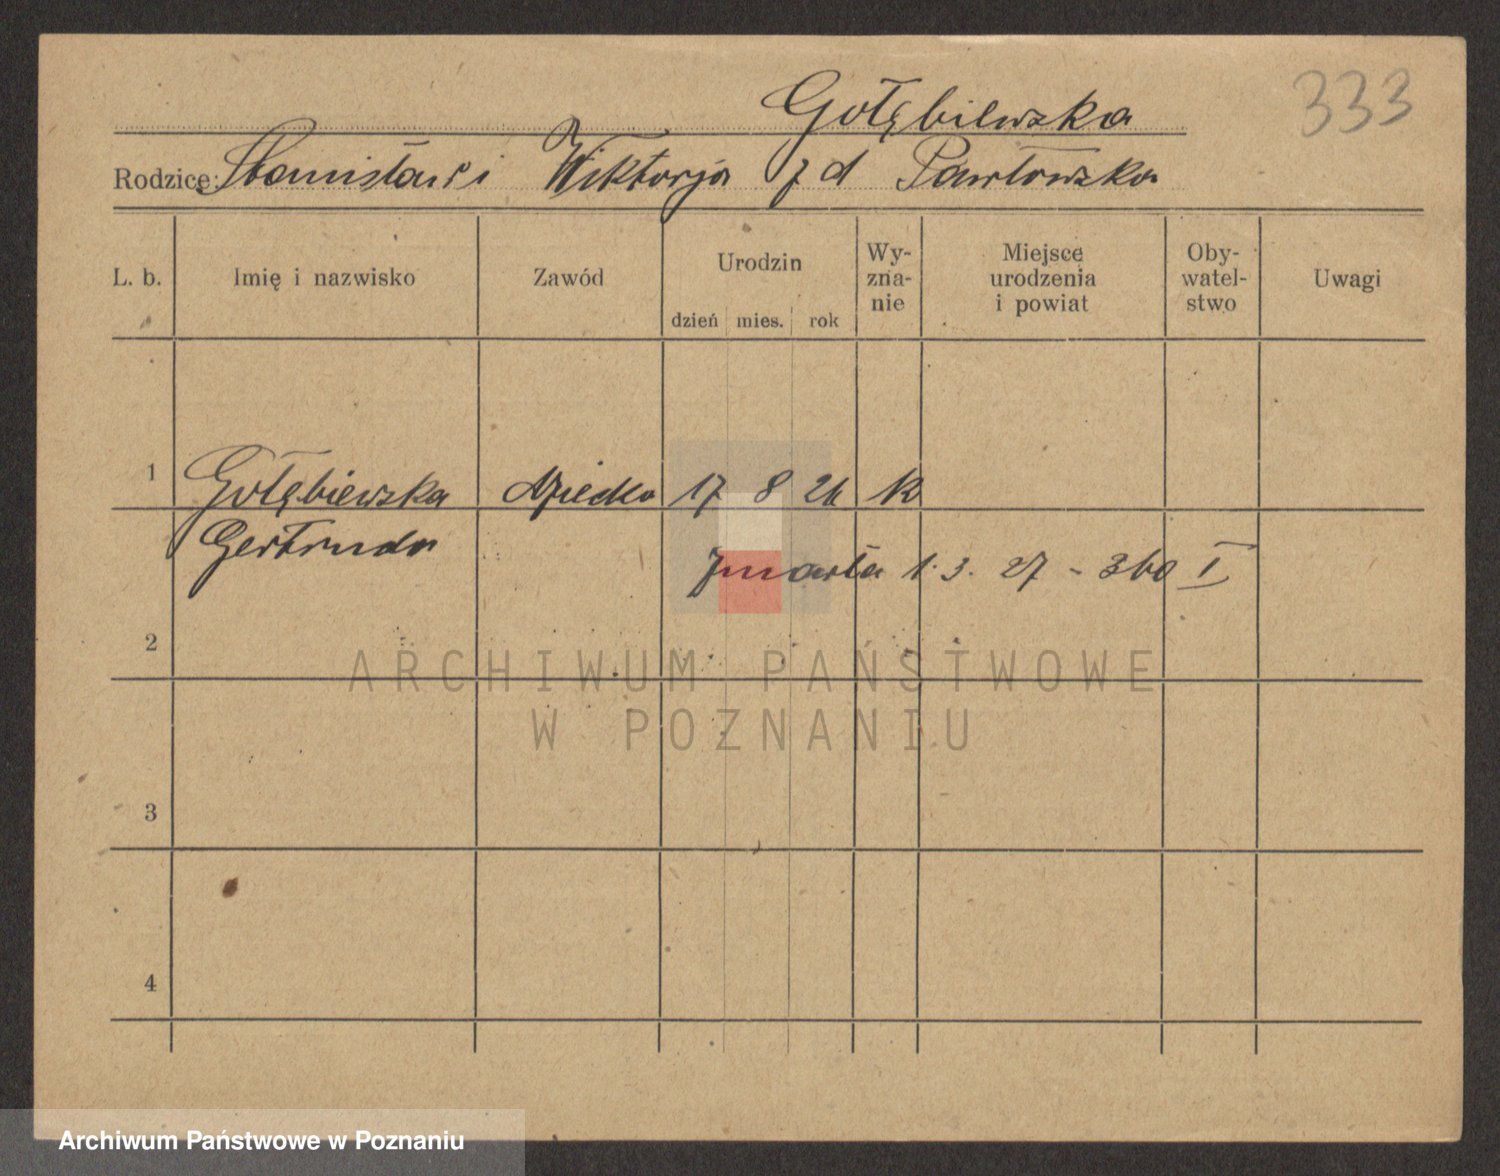 333
Gołębiewska
Rodzice: Stanisław i Wiktorja z d Pawłowska
L. b. Imię i nazwisko Zawód Urodzin dzień mies. rok Wy-znanie Miejsce urodzenia i powiat Oby-watel-stwo Uwagi
1 Gołębiewska dziecko 17 8 24 k
Gertruda
zmarła 1. 3. 27 - 360 I
2
ARCHIWUM PAŃSTWOWE
W POZNANIU
3
4
Archiwum Państwowe w Poznaniu